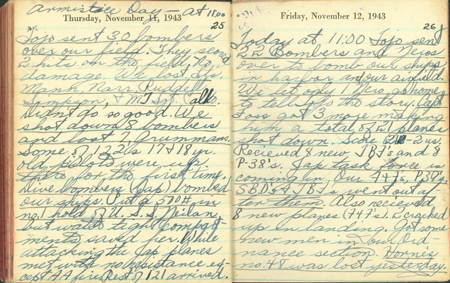 Armistice Day — at 11:00
Thursday, November 11, 1943
25
Tojo sent 30 bombers
over our field. They scored
2 hits on the field, no
damage. We lost Lts.
Mank, Narr, Rudgell
Simpson, & M/Sgt
Didn't do so good. We
shot down 8 bombers
and lost 7 Grummans.
Some of 122's 17 & 18 yr.
old pilots were up
there for the first time.
Dive bombers (Jap) bombed
our ships. Put a 570# in
no. 1 hold of U.S.S. Milan,
but water tight compart-
ments saved her. While
attacking the Jap planes
met with no resistance ex-
cept AA fire. Rest of 121 arrived.
Friday, November 12, 1943
26
Today at 11:00 Tojo sent
Bombers and
over to bomb our ships
in harbor and our airfield.
We let only 1 Jap go home
to tell Tojo the story. Capt
Foss got 3 more making
him a total of 21 planes
shot down. Score -2 us.
Recieved 8 new TBF's and 8
P-38's.
coming in. Our F4F's, P39's,
SBD's & TBF's went out after
them. Also recieved
8 new planes (F4F's). 1 cracked
up in landing. Got some
new men in our Ord-
nance section. Hornie's
no. 48 was lost yesterday.